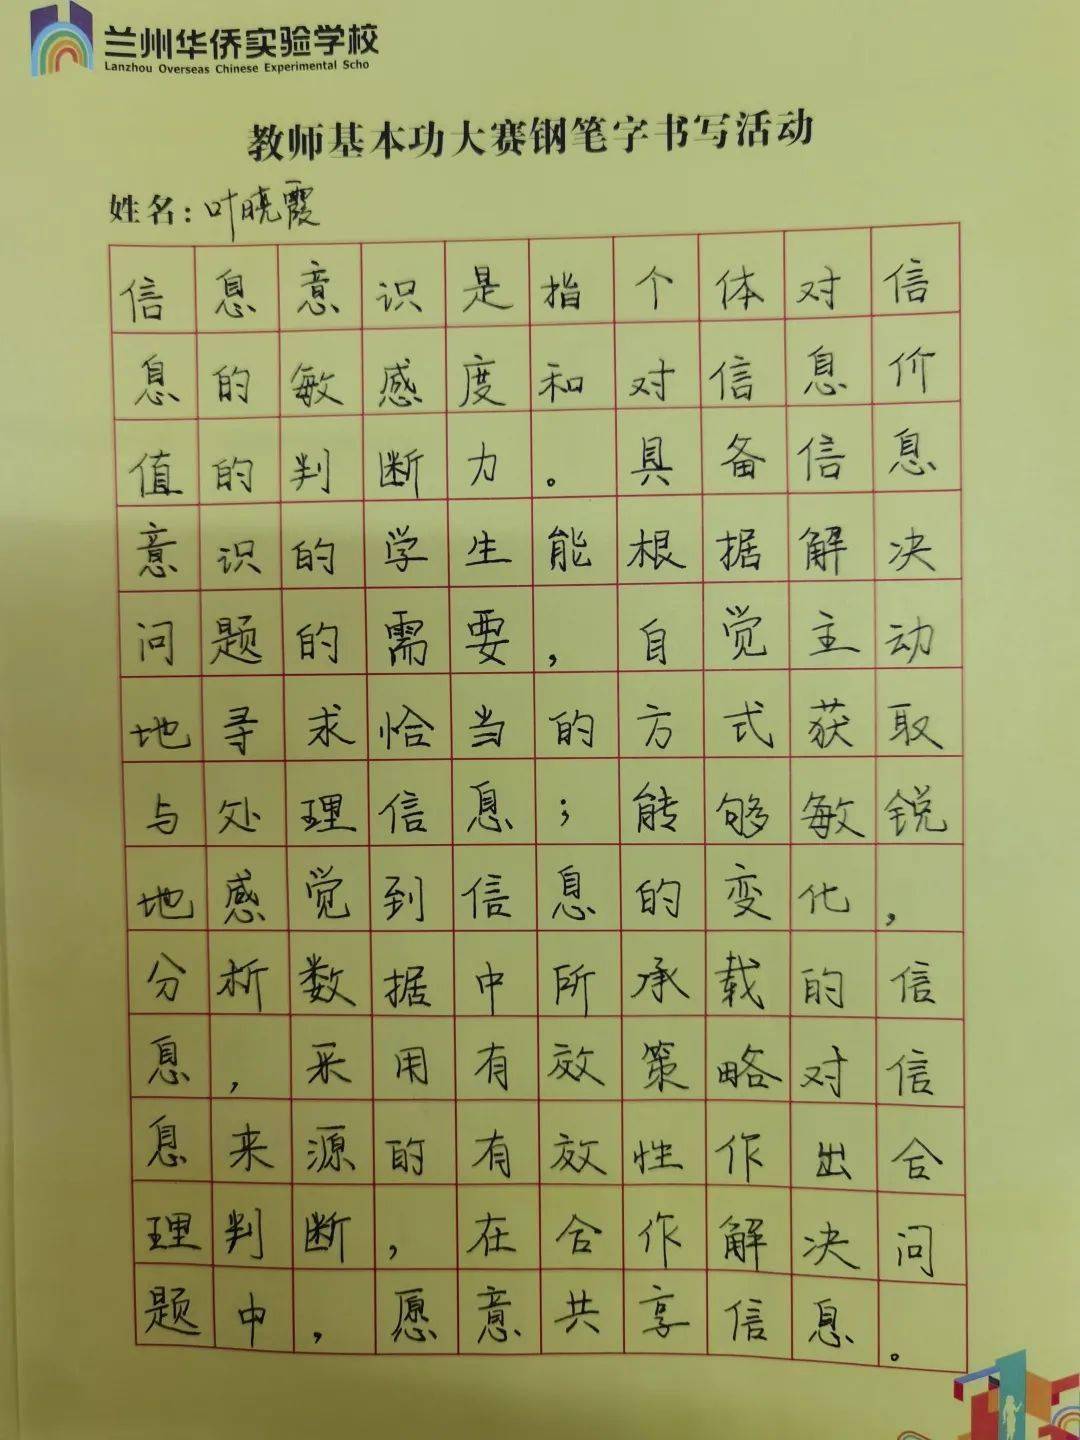 兰州华侨实验学校
Lanzhou Overseas Chinese Experimental Scho
教师基本功大赛钢笔字书写活动
姓名:叶晓霞
信息意识是指个体对信
息的敏感度和对信息价
值的判断力。具备信息
意识的学生能根据解决
问题的需要,自觉主动
地寻求恰当的方式获取
与处理信息;能够敏锐
地感觉到信息的变化,
分析数据中所承载的信
息,采用有效策略对信
息来源的有效性作出合
理判断,在合作解决问
题中,愿意共享信息。